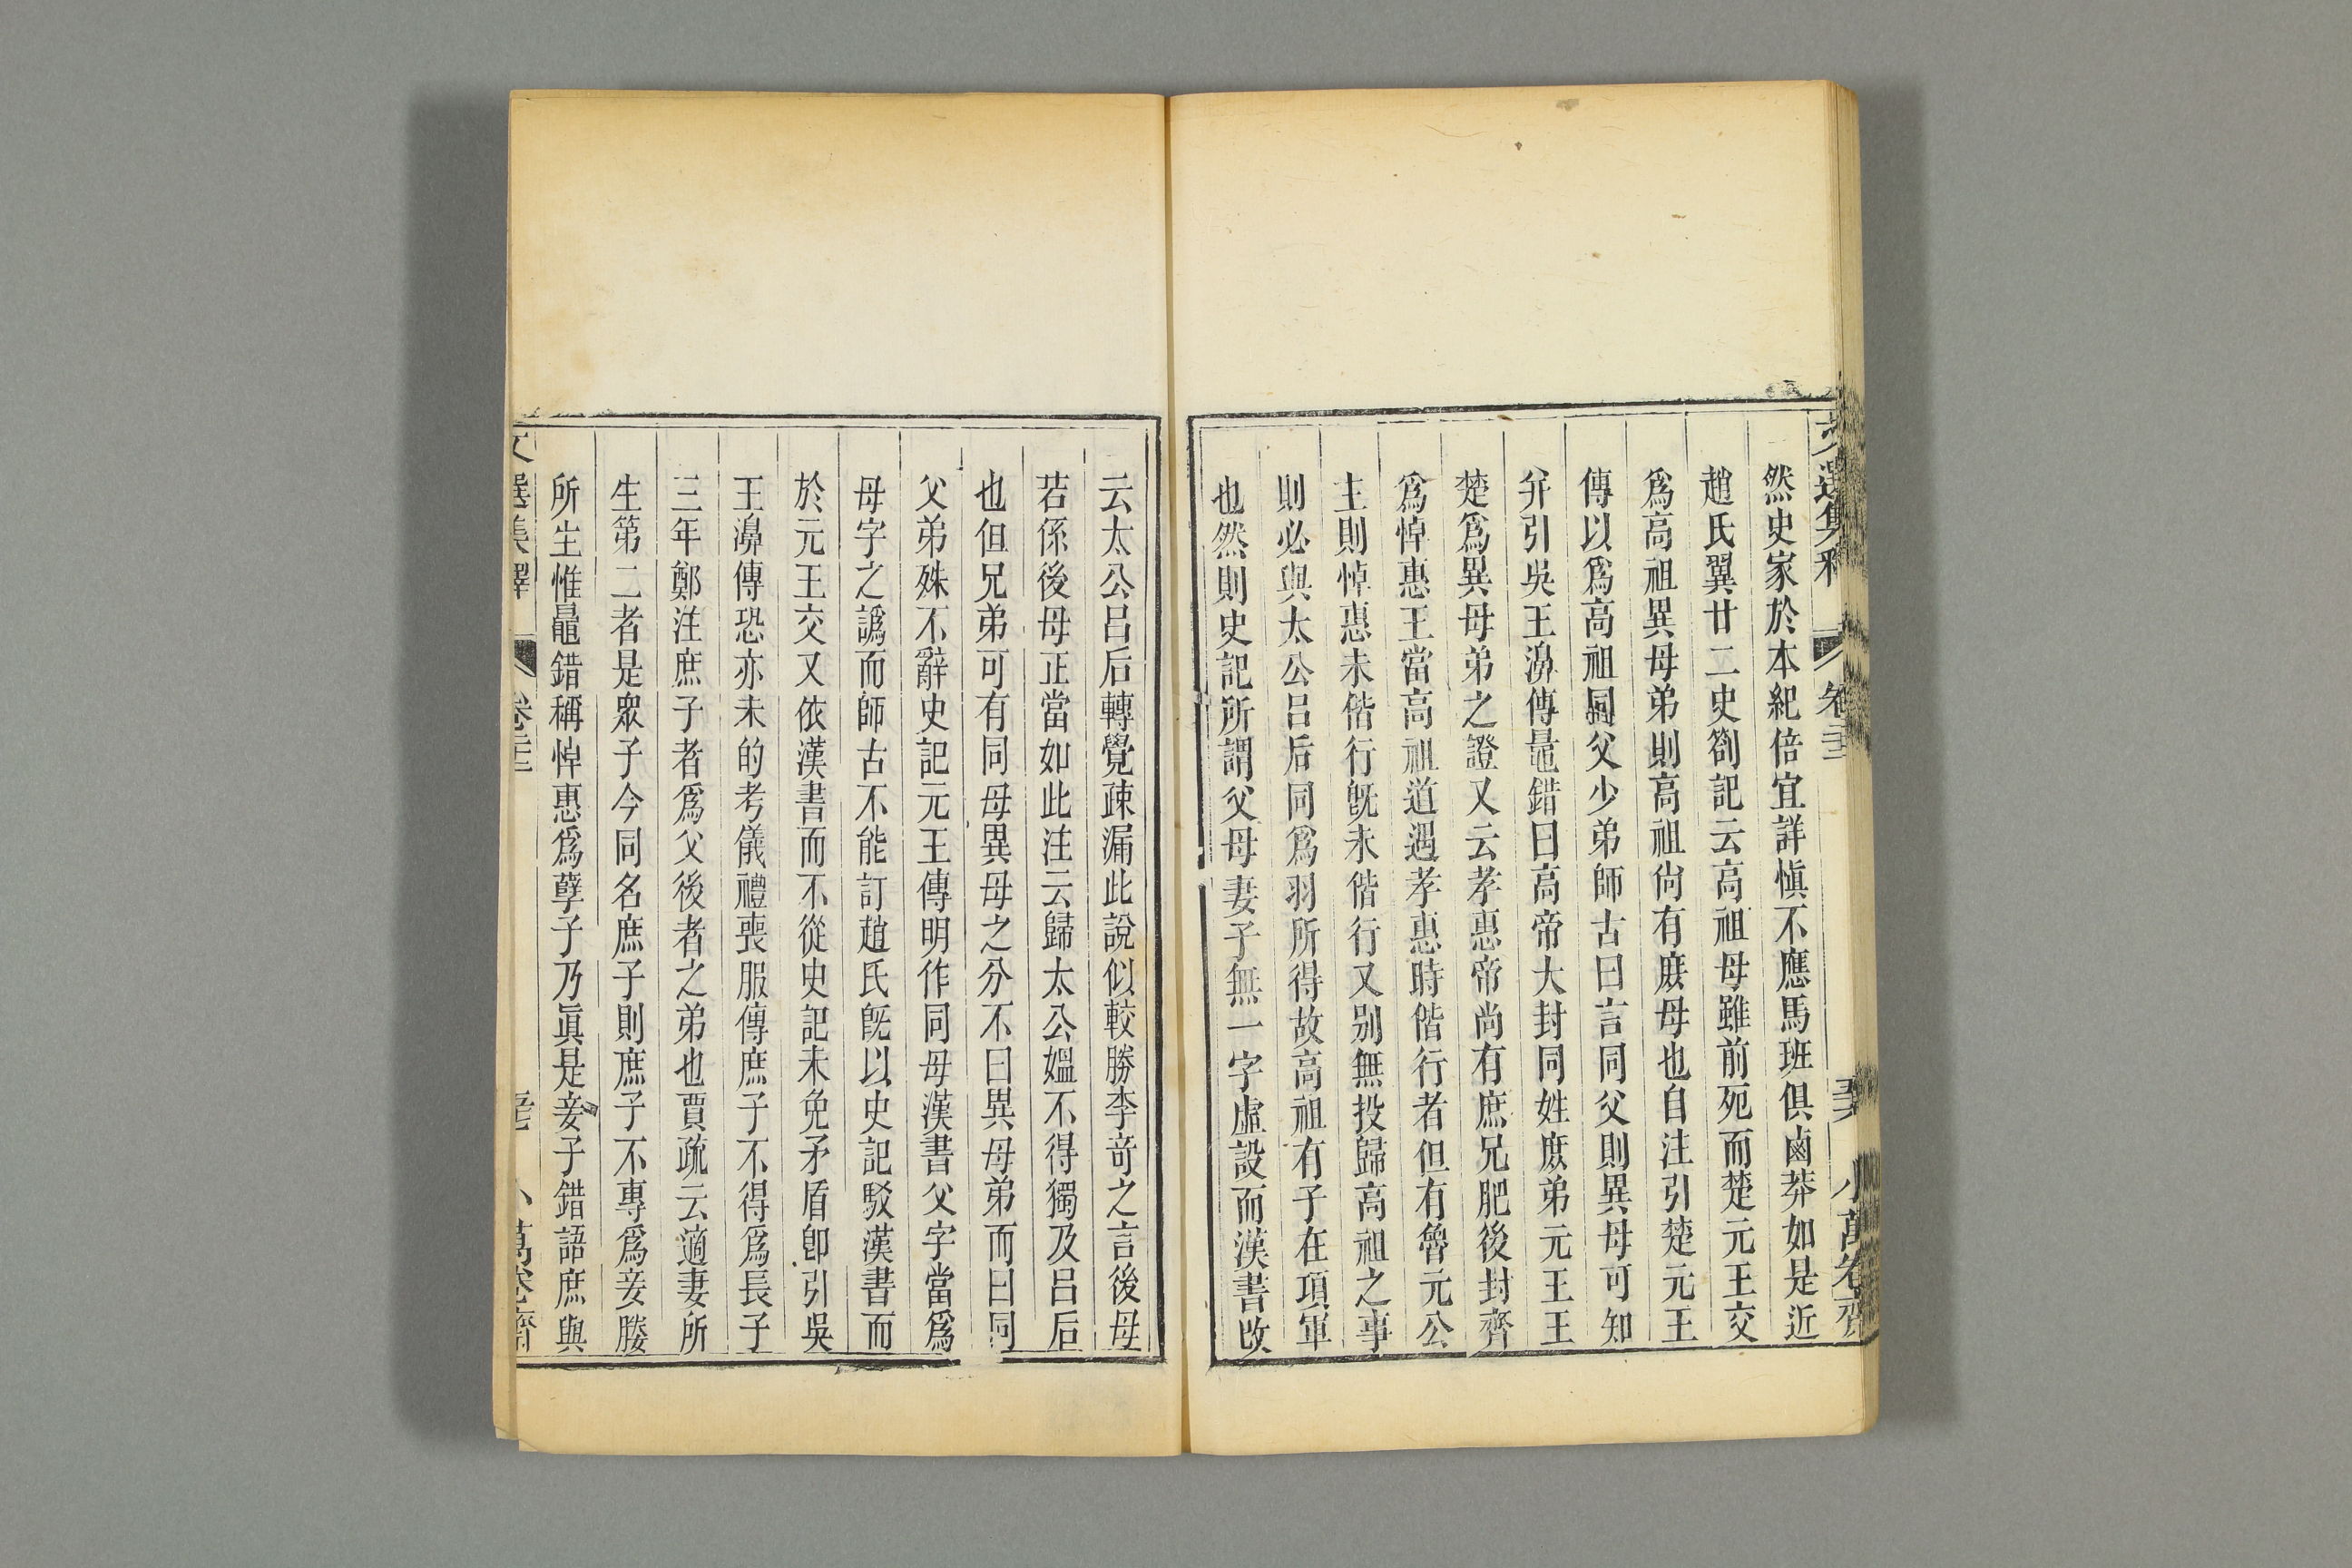 文選集釋 卷二十三 小萬卷齋
然史家於本紀倍宜詳愼不應馬班俱鹵莽如是近
趙氏翼廿二史劄記云高祖母雖前死而楚元王交
爲高祖異母弟則高祖尙有庶母也自注引楚元王
傳以爲高祖同父少弟師古曰言同父則異母可知
幷引吳王濞傳鼂錯曰高帝大封同姓庶弟元王王
楚爲異母弟之證又云孝惠帝尚有庶兄肥後封齊
爲悼惠王當高祖道遇孝惠時偕行者但有魯元公
主則悼惠未偕行旣未偕行又别無投歸高祖之事
則必與太公呂后同爲羽所得故高祖有子在項軍
也然則史記所謂父母妻子無一字虛設而漢書改
云太公呂后轉覺疎漏此說似較勝李奇之言後母
若係後母正當如此注云歸太公媼不得獨及呂后
也但兄弟可有同母異母之分不曰異母弟而曰同
父弟殊不辭史記元王傳明作同母漢書父字當爲
母字之譌而師古不能訂趙氏旣以史記駁漢書而
於元王交又依漢書而不從史記未免矛盾卽引吳
王濞傳恐亦未的考儀禮喪服傳庶子不得爲長子
三年鄭注庶子者爲父後者之弟也賈疏云適妻所
生第二者是眾子今同名庶子則庶子不專爲妾媵
所生惟鼂錯稱悼惠爲孽子乃眞是妾子錯語庶與
文選集釋 卷二十三 小萬卷齋